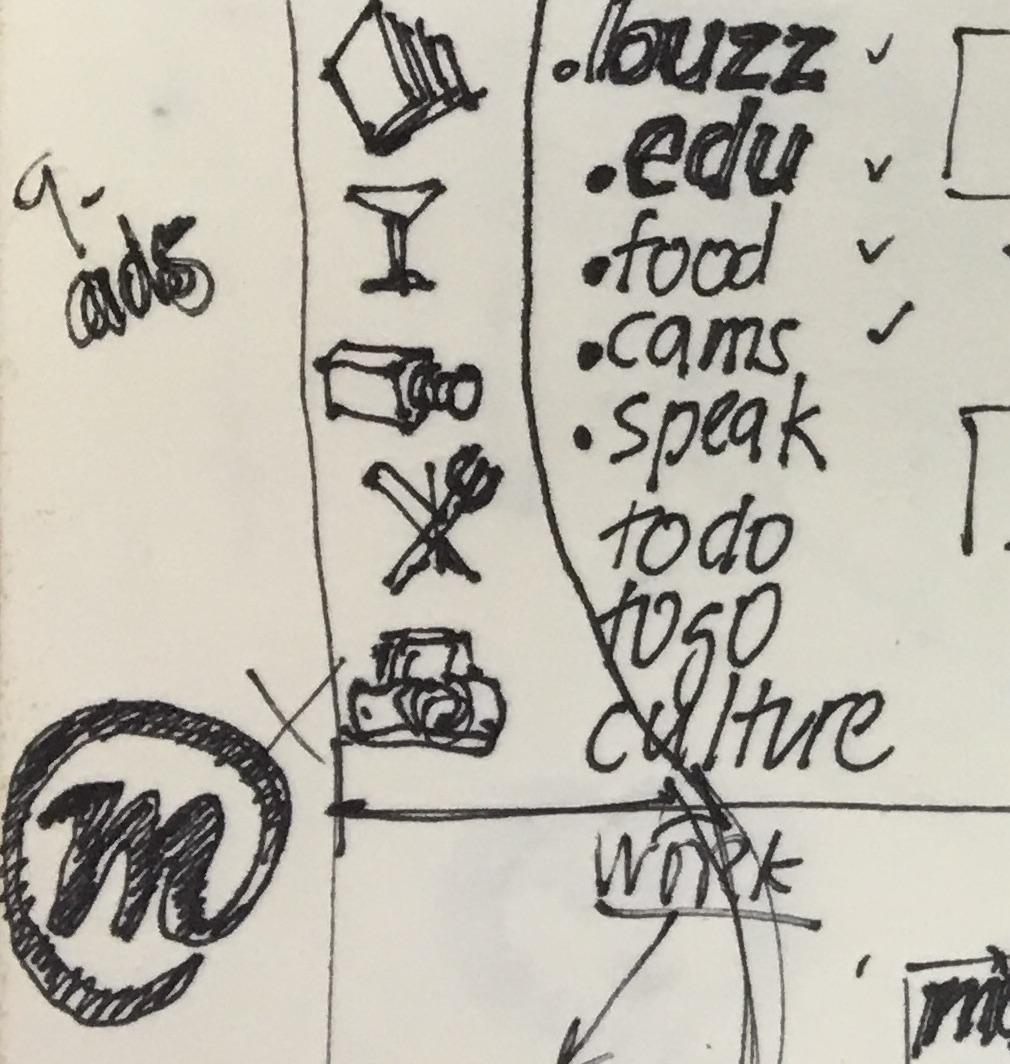 .buzz ✓
.edu ✓
.food ✓
.cams ✓
.speak
todo
togo
culture
work
ads
m